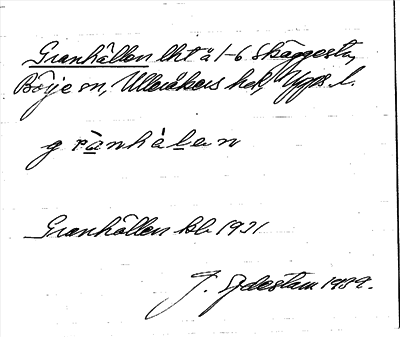 Granhällen lht å 1-6 Skäggesta,
Börje sn, Ulleråkers hd, Upps. l.
grànhàlen
Granhällen kb 1931
J. Sydestam 1939.